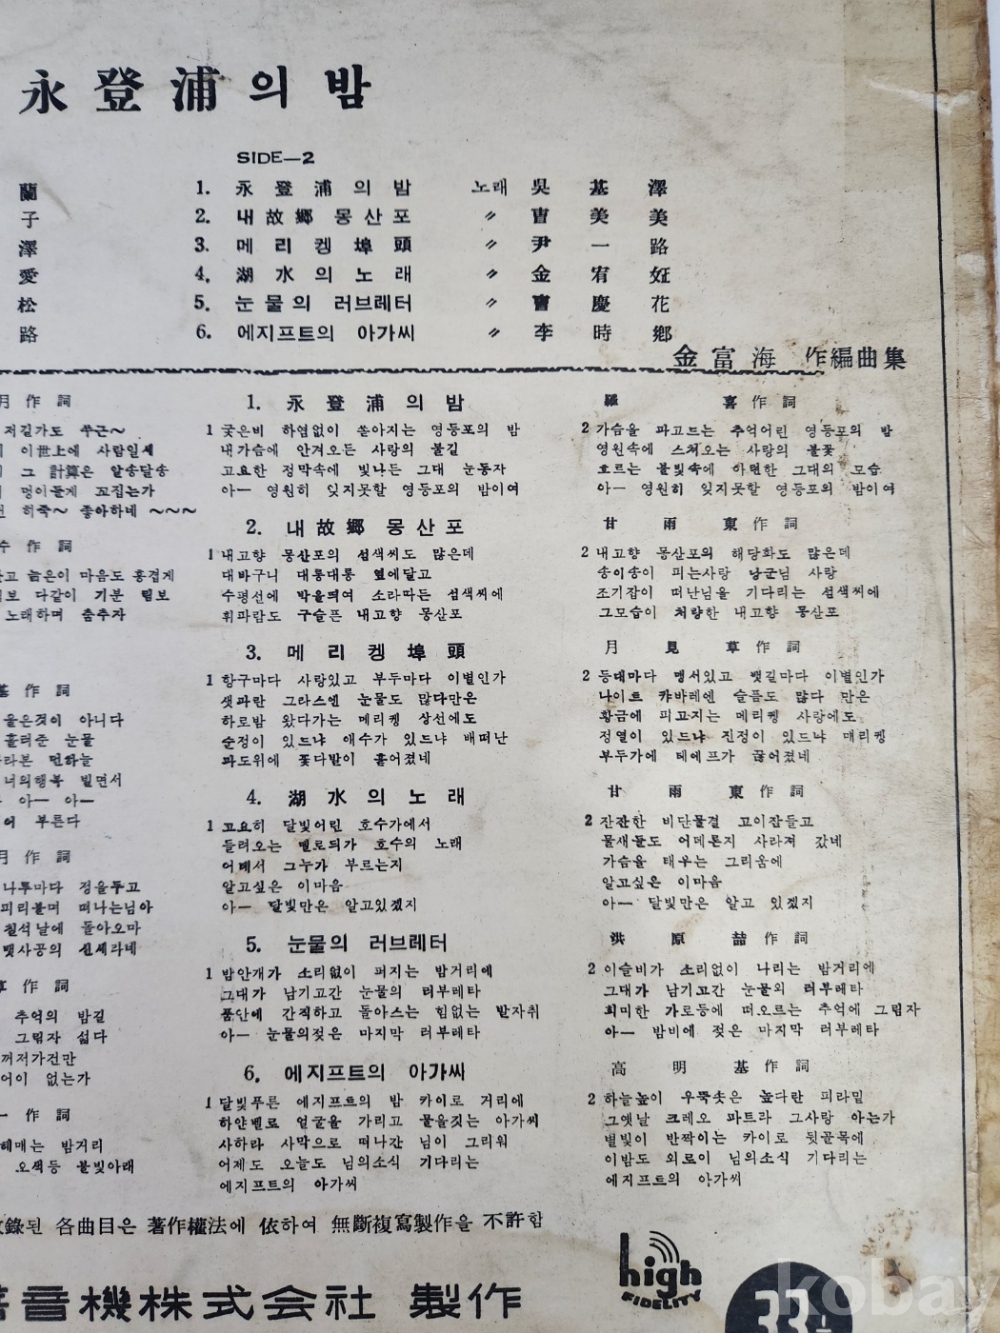 永登浦의 밤
SIDE—2
蘭
子
澤
愛
松
路
1. 永登浦의밤 노래 吳基澤
2. 내故鄕 몽산포 〃 曺美美
3. 메리켕埠頭 〃 尹一路
4. 湖水의노래 〃 金宥
5. 눈물의 러브레터 〃 曺慶花
6. 에지프트의 아가씨 〃 李時鄕
金富海 作編曲集
月作詞
저길가도 쑤근～
이世上에 사람일세
그 計算은 알송달송
멍이들게 꼬집는가
히죽～ 좋아하네 ～～～
수作詞
늙은이 마음도 흥겹게
다같이 기분
노래하며 춤추자
基作詞
울은것이 아니다
흘려준 눈물
라본 먼하늘
너의행복 빌면서
아— 아—
부른다
月作詞
나루마다 정을두고
피리불며 떠나는님아
칠석날에 돌아오마
뱃사공의 신세라네
草作詞
추억의 밤길
그림자 섧다
꺼져가건만
없는가
一作詞
헤매는 밤거리
오색등 불빛아래
1. 永登浦의밤
羅 喜作詞
1 궂은비 하염없이 쏟아지는 영등포의 밤
내가슴에 안겨오든 사랑의 불길
고요한 정막속에 빛나든 그대 눈동자
아— 영원히 잊지못할 영등포의 밤이여
2 가슴을 파고드는 추억어린 영등포의 밤
영원속에 스쳐오는 사랑의 불꽃
흐르는 불빛속에 아련한 그대의 모습
아— 영원히 잊지못할 영등포의 밤이여
2. 내故鄕 몽산포
甘雨東作詞
1 내고향 몽산포의 섬색씨도 많은데
대바구니 대롱대롱 옆에달고
수평선에 박을띄여 소라따든 섬색씨에
휘파람도 구슬픈 내고향 몽산포
2 내고향 몽산포의 해당화도 많은데
송이송이 피는사랑 낭군님 사랑
조기잡이 떠난님을 기다리는 섬색씨에
그모습이 처량한 내고향 몽산포
3. 메리켕埠頭
月見草作詞
1 항구마다 사랑있고 부두마다 이별인가
샛파란 그라스엔 눈물도 많다만은
하로밤 왔다가는 메리켕 상선에도
순정이 있드냐 애수가 있드냐 배떠난
파도위에 꽃다발이 흩어졌네
2 등대마다 맹서있고 뱃길마다 이별인가
나이트 캬바레엔 슬픔도 많다 만은
황금에 피고지는 메리켕 사랑에도
정열이 있드냐 진정이 있드냐 매리켕
부두가에 테에프가 끊어졌네
4. 湖水의노래
甘雨東作詞
1 고요히 달빛어린 호수가에서
들려오는 멜로듸가 호수의 노래
어데서 그누가 부르는지
알고싶은 이마음
아— 달빛만은 알고있겠지
2 잔잔한 비단물결 고이잠들고
물새들도 어데론지 사라져 갔네
가슴을 태우는 그리움에
알고싶은 이마음
아— 달빛만은 알고 있겠지
5. 눈물의 러브레터
洪原喆作詞
1 밤안개가 소리없이 퍼지는 밤거리에
그대가 남기고간 눈물의 러부레타
품안에 간직하고 돌아스는 힘없는 발자취
아— 눈물의젖은 마지막 러부레타
2 이슬비가 소리없이 나리는 밤거리에
그대가 남기고간 눈물의 러부레타
희미한 가로등에 떠오르는 추억에 그림자
아— 밤비에 젖은 마지막 러부레타
6. 에지프트의 아가씨
高明基作詞
1 달빛푸른 에지프트의 밤 카이로 거리에
하얀벨로 얼굴을 가리고 물을짓는 아가씨
사하라 사막으로 떠나간 님이 그리워
어제도 오늘도 님의소식 기다리는
에지프트의 아가씨
2 하늘높이 우뚝솟은 높다란 피라밑
그옛날 크레오 파트라 그사랑 아는가
별빛이 반짝이는 카이로 뒷골목에
이밤도 외로이 님의소식 기다리는
에지프트의 아가씨
錄된 各曲目은 著作權法에 依하여 無斷複寫製作을 不許함
音機株式会社 製作
high
FIDELITY
33⅓
kobay